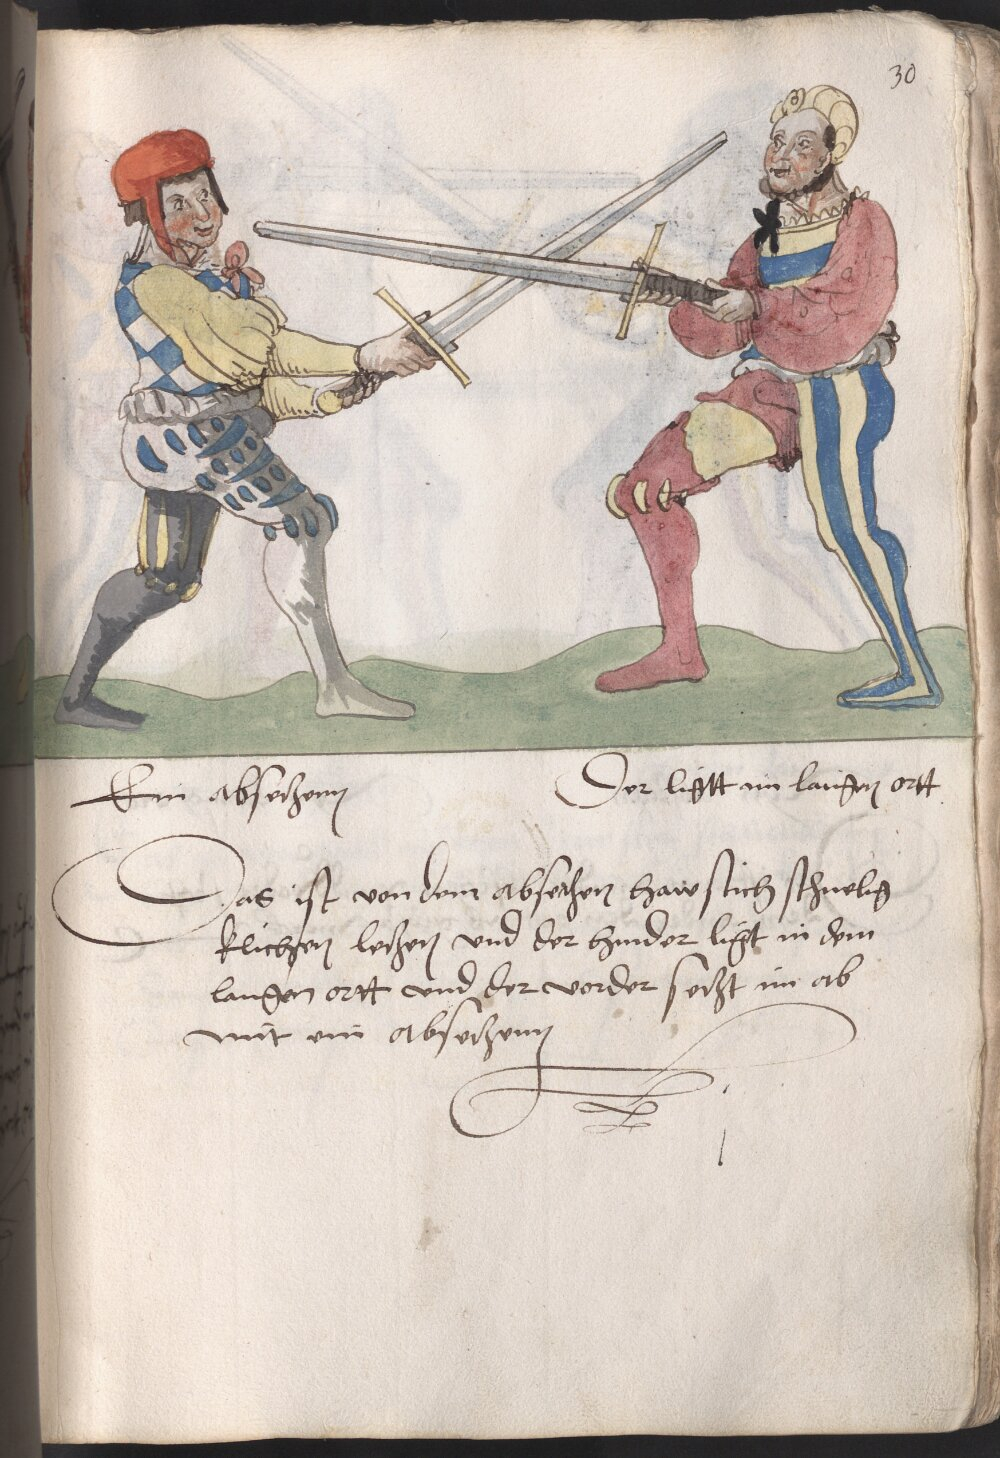 30
Ein abseczenn
Der ligtt im langen ortt
Das ist von dem abseczen haw stich schnelig
klichen leczen und der hinder ligt in dem
langen ortt und der vorder seczt im ab
mit ein abseczenn